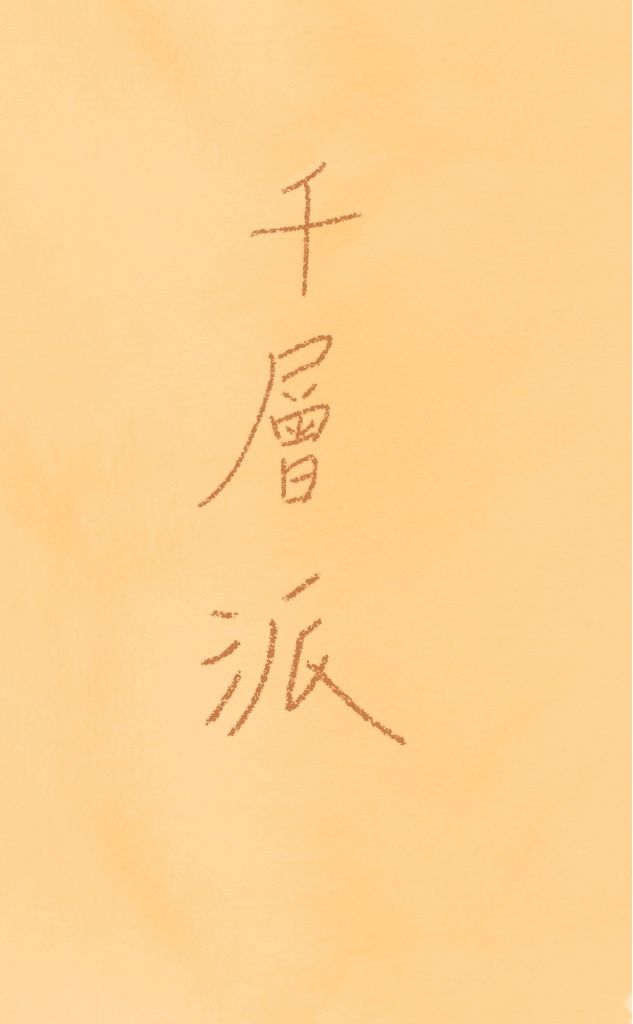 千層派